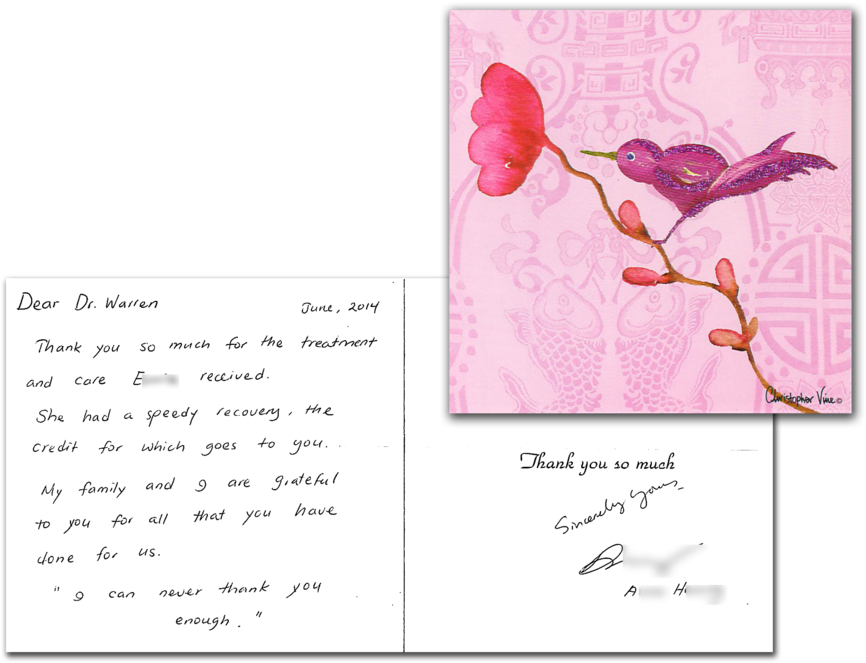 Christopher Vine ©
Dear Dr. Warren
June, 2014
Thank you so much for the treatment
and care E received.
She had a speedy recovery, the
credit for which goes to you.
My family and I are grateful
to you for all that you have
done for us.
" I can never thank you
enough. "
Thank you so much
Sincerely yours
A H